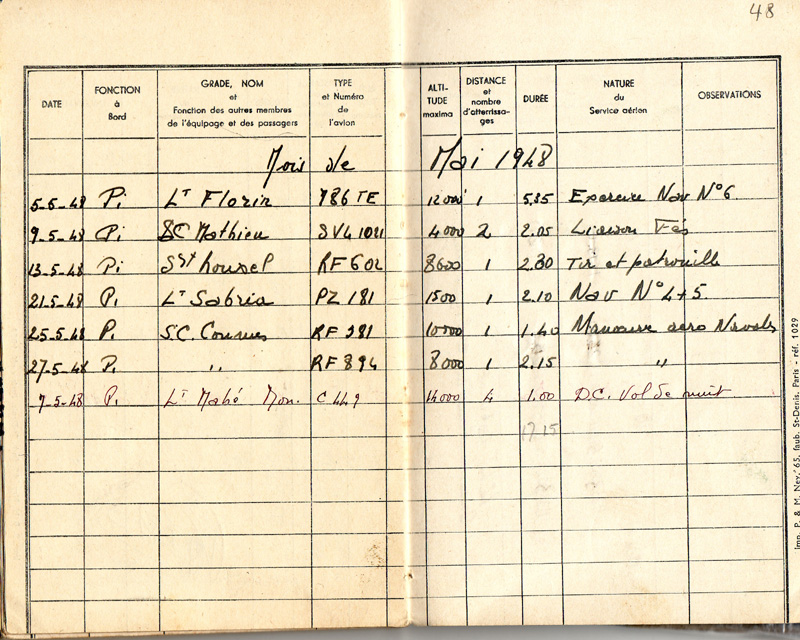 48
DATE FONCTION à Bord GRADE, NOM et Fonction des autres membres de l'équipage et des passagers TYPE et Numéro de l'avion ALTI-TUDE maxima DISTANCE et nombre d'atterrissa-ges DURÉE NATURE du Service aérien OBSERVATIONS
Mois de Mai 1948
5-5-48 Pi LT Florin 786 TE 12000 1 Exercice Nav N°6
9-5-48 Pi SC Mathieu SV4 1021 4000 2 2.05 Liaison Fès
13-5-48 Pi SGT Roussel RF 602 8600 1 2.30 Tir et patrouille
21-5-48 Pi LT Sabria PZ 181 1500 1 2.10 Nav N° 4+5.
25-5-48 Pi S.C. RF 381 10000 1 1.40 Manœuvre aéro Navale
27-5-48 Pi " RF 894 8000 1 2.15 "
7-5-48 Pi LT Mahé Mon. C 449 4 1.00 D.C. Vol de nuit
17.15
Imp. P. & M. Ney, 65, faub. St-Denis, Paris - réf. 1029